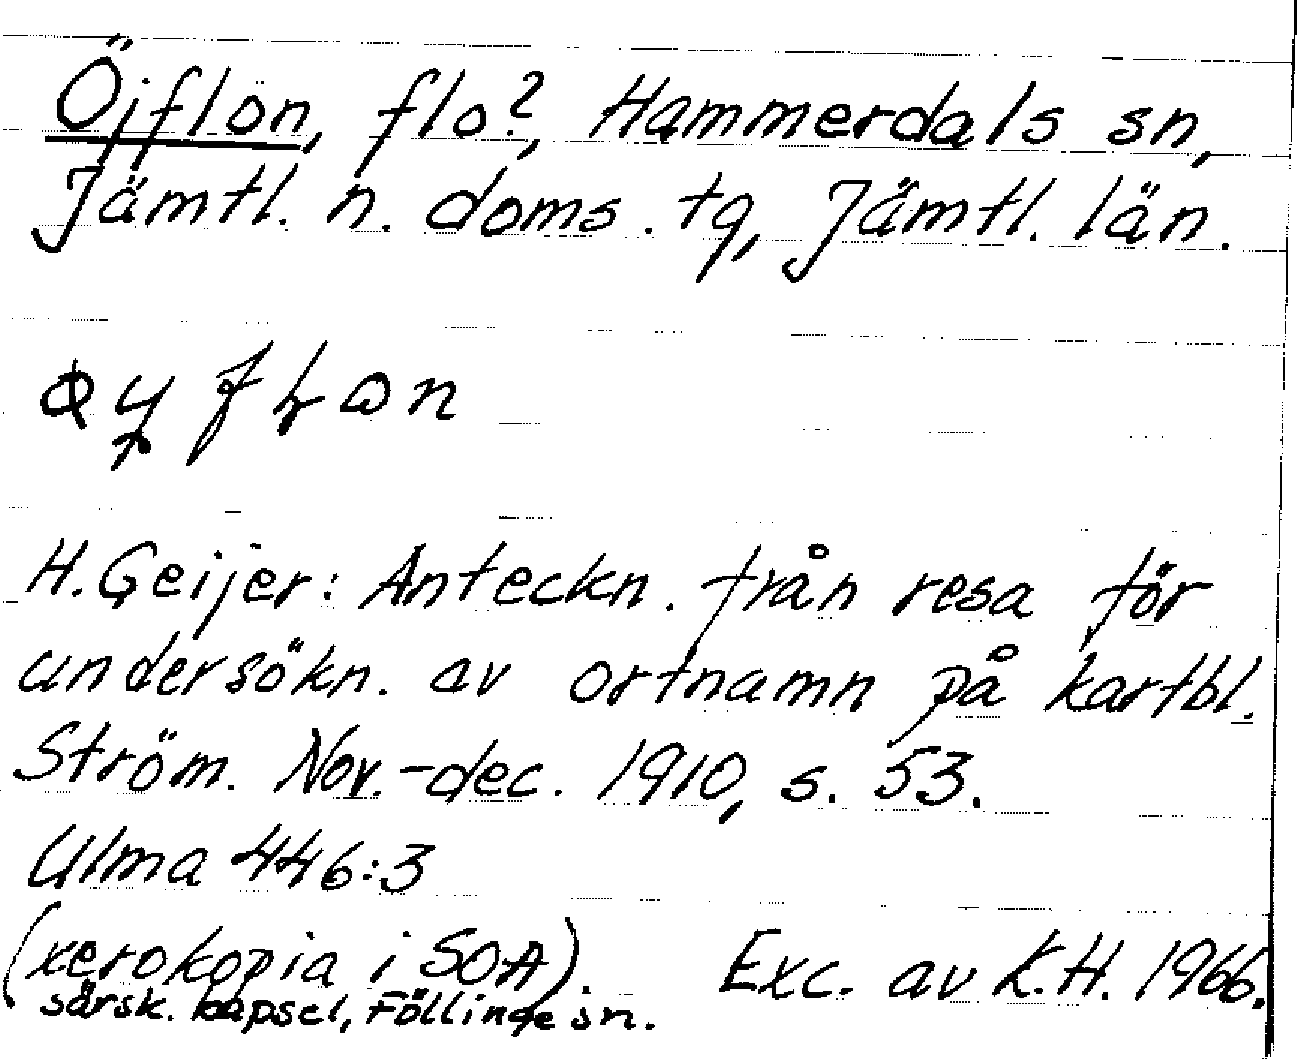 Öjflon, flo?, Hammerdals sn,
Jämtl. n. doms. tg, Jämtl. län.
H. Geijer: Anteckn. från resa för
undersökn. av ortnamn på kartbl.
Ström. Nov.-dec. 1910, s. 53.
Ulma 446:3
(xerokopia i SOA). Exc. av K.H. 1966.
särsk. kapsel, Föllinge sn.